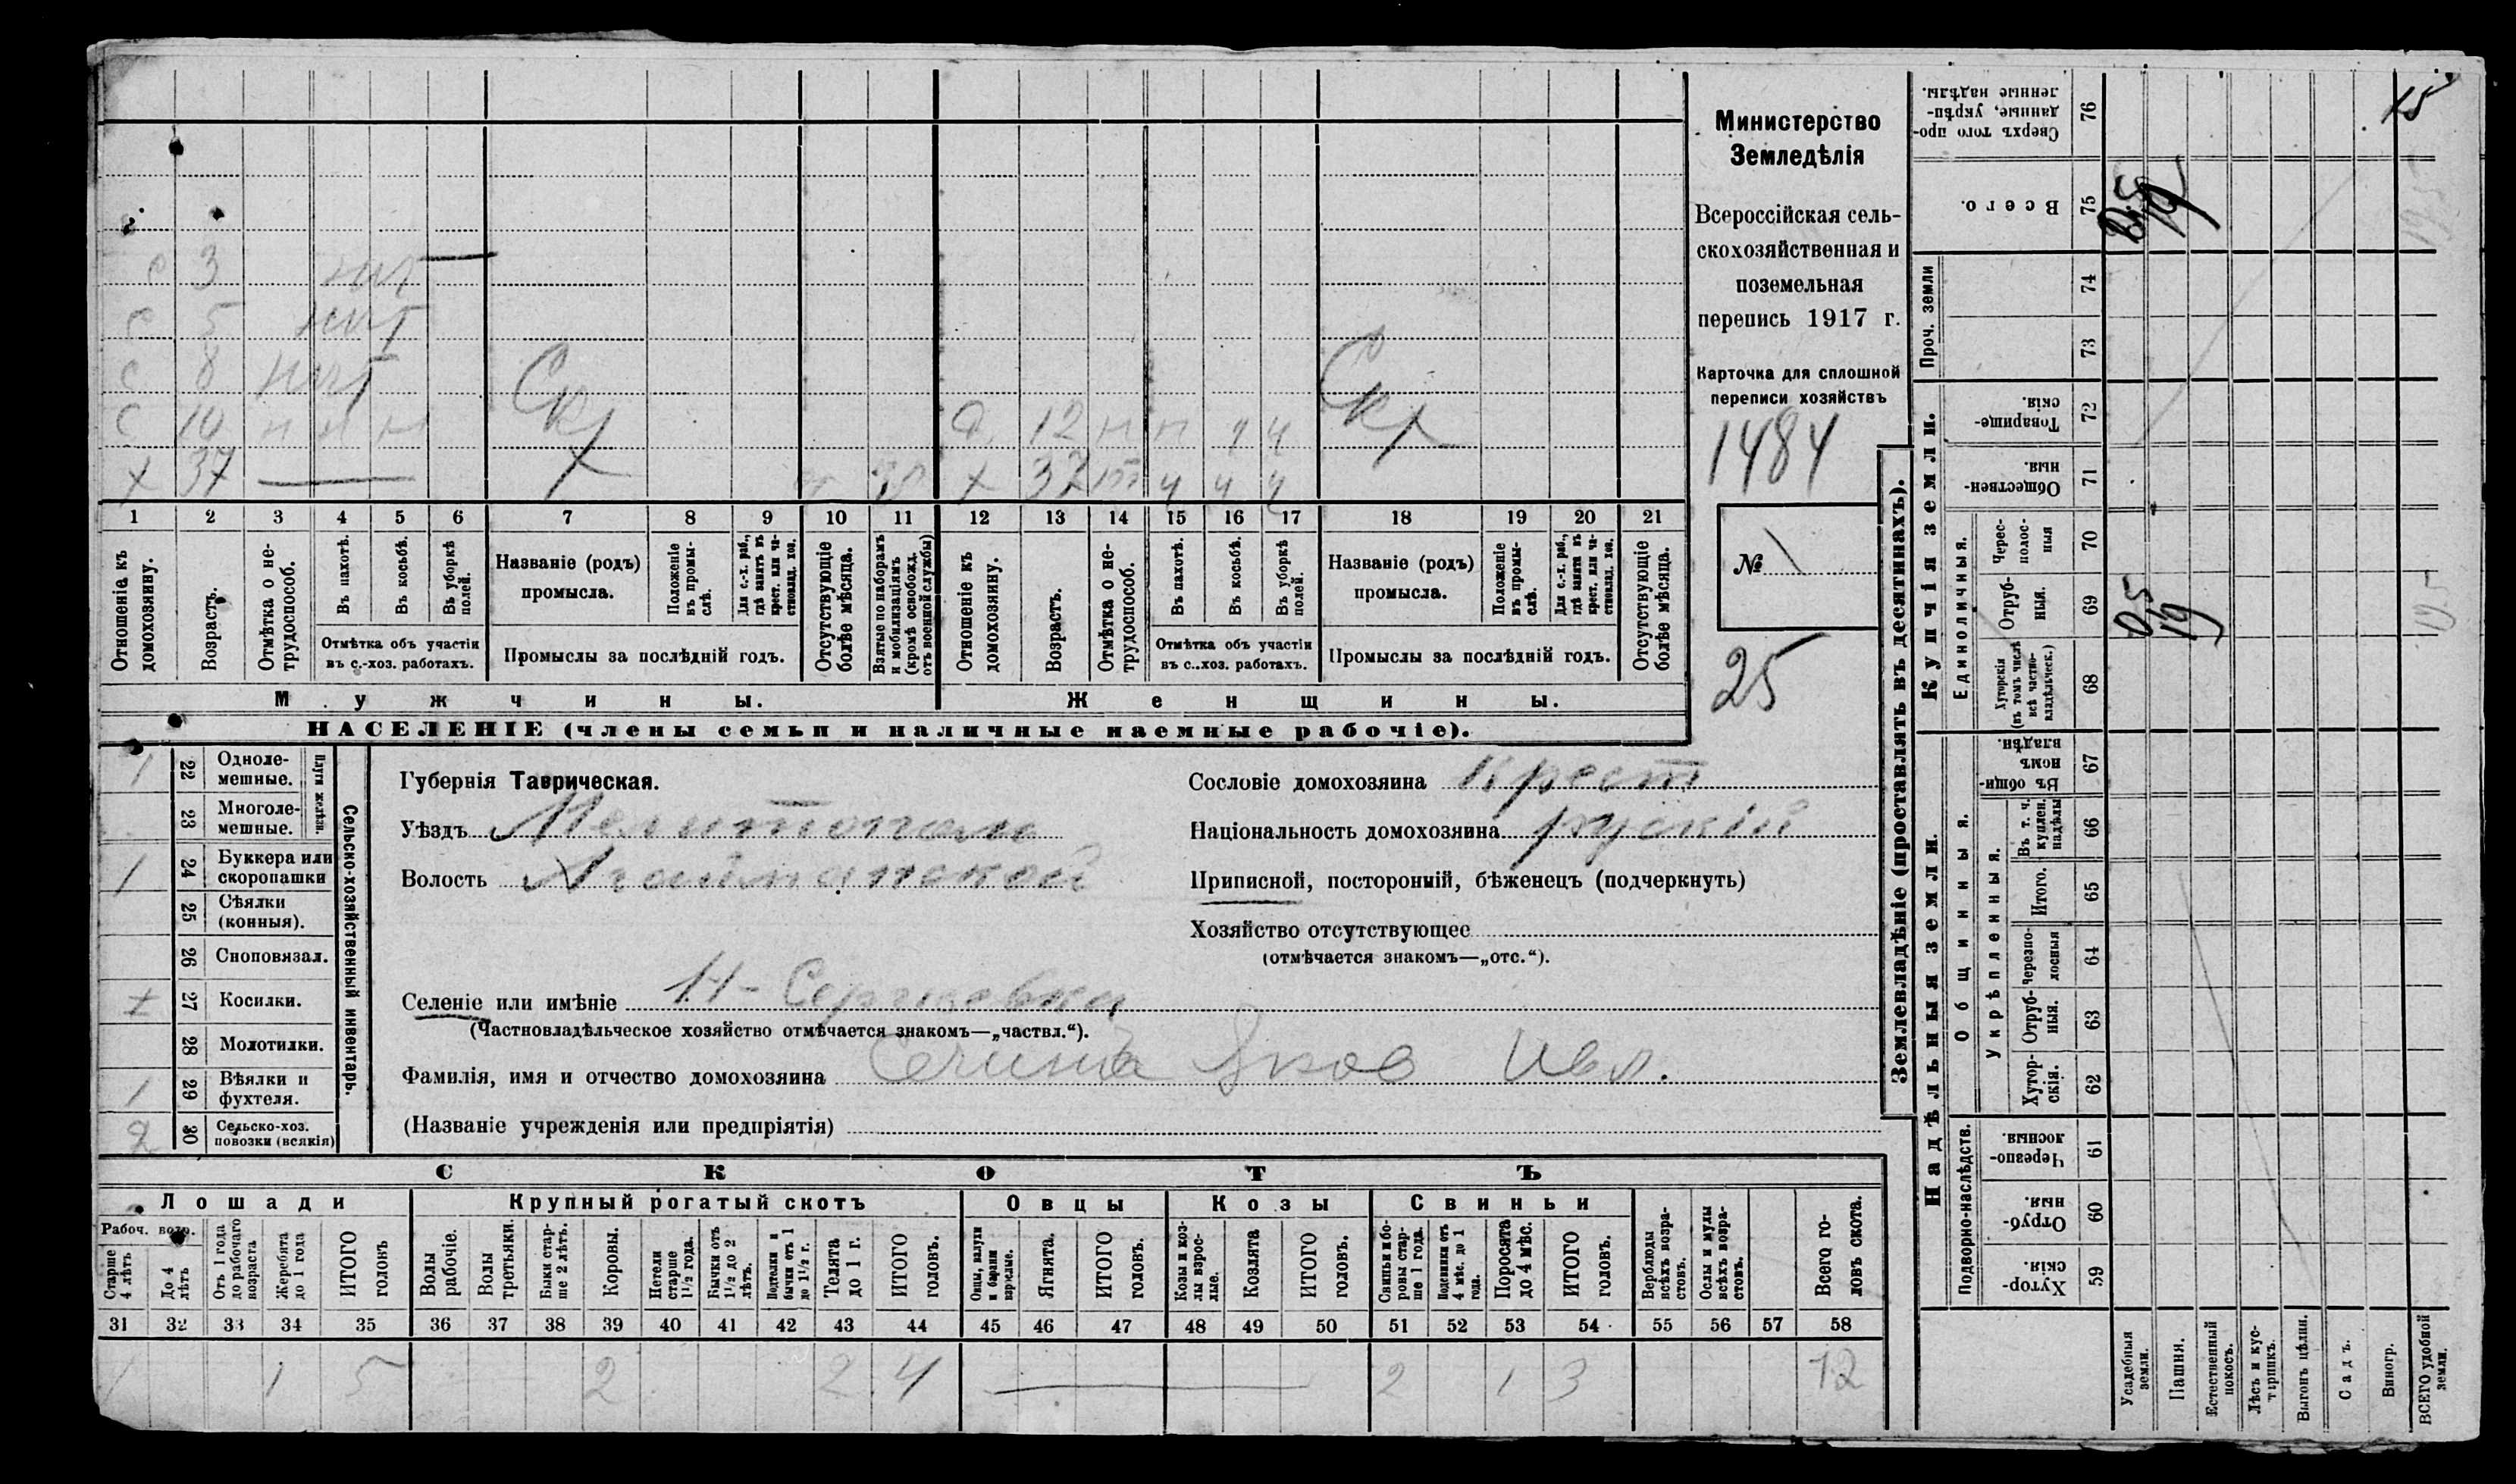 Министерство
Земледѣлія
Всероссійская сель-
скохозяйственная и
поземельная
перепись 1917 г.
Карточка для сплошной
переписи хозяйствъ
1484
№
25
с 3
с 5
с 8
с 10 н н н
х 37
Ск
12
х 37
1 2 3 4 5 6 7 8 9 10 11 12 13 14 15 16 17 18 19 20 21
Отношеніе къ домохозяину.
Возрастъ.
Отмѣтка о не-трудоспособ.
Въ пахотѣ.
Въ косьбѣ.
Въ уборкѣ полей.
Отмѣтка объ участіи
въ с.-хоз. работахъ.
Названіе (родъ)
промысла.
Положеніе въ промы-слѣ.
Для с.-х. раб., гдѣ занятъ въ крест. или ча-стновлад. хоз.
Промыслы за послѣдній годъ.
Отсутствующіе болѣе мѣсяца.
Взятые по наборамъ и мобилизаціямъ (кромѣ освобожд. отъ военной службы)
Отношеніе къ домохозяину.
Возрастъ.
Отмѣтка о не-трудоспособ.
Въ пахотѣ.
Въ косьбѣ.
Въ уборкѣ полей.
Отмѣтка объ участіи
въ с..хоз. работахъ.
Названіе (родъ)
промысла.
Положеніе въ промы-слѣ.
Для с.-х. раб., гдѣ занята въ крест. или ча-стновлад. хоз.
Промыслы за послѣдній годъ.
Отсутствующіе болѣе мѣсяца.
Мужчины.
Женщины.
НАСЕЛЕНІЕ (члены семьи и наличные наемные рабочіе).
Сельско-хозяйственный инвентарь.
Плуги желѣзн.
1 22 Одноле-мешные.
23 Многоле-мешные.
1 24 Буккера или скоропашки
25 Сѣялки (конныя).
26 Сноповязал.
27 Косилки.
28 Молотилки.
1 29 Вѣялки и фухтеля.
2 30 Сельско-хоз. повозки (всякія)
Губернія Таврическая.
Уѣздъ
Волость
Селеніе или имѣніе Н-Сергіевка
(Частновладѣльческое хозяйство отмѣчается знакомъ—„частвл.“).
Фамилія, имя и отчество домохозяина Яков
(Названіе учрежденія или предпріятія)
Сословіе домохозяина Крест
Національность домохозяина рускій
Приписной, посторонній, бѣженецъ (подчеркнуть)
Хозяйство отсутствующее
(отмѣчается знакомъ—„отс.“).
СКОТЪ
Лошади
Крупный рогатый скотъ
Овцы
Козы
Свиньи
Рабоч. возр.
Старше 4 лѣтъ
До 4 лѣтъ
Отъ 1 года до рабочаго возраста
Жеребята до 1 года
ИТОГО головъ
Волы рабочіе.
Волы третьяки.
Быки стар-ше 2 лѣтъ.
Коровы.
Нетели старше 1½ года.
Бычки отъ 1½ до 2 лѣтъ.
Подтелки и бычки отъ 1 до 1½ г.
Телята до 1 г.
ИТОГО головъ.
Овцы, валухи и бараны взрослые.
Ягнята.
ИТОГО головъ.
Козы и коз-лы взрос-лые.
Козлята
ИТОГО головъ.
Свиньи и бо-ровы стар-ше 1 года.
Подсвинки отъ 4 мѣс. до 1 года.
Поросята до 4 мѣс.
ИТОГО головъ.
Верблюды всѣхъ возра-стовъ.
Ослы и мулы всѣхъ возра-стовъ.
Всего го-ловъ скота.
31 32 33 34 35 36 37 38 39 40 41 42 43 44 45 46 47 48 49 50 51 52 53 54 55 56 57 58
1 1 5 2 2 4 2 1 3 12
Землевладѣніе (проставлять въ десятинахъ).
Купчія земли.
Надѣльныя земли.
Проч. земли
Единоличныя.
Общинныя.
Укрѣпленныя.
Подворно-наслѣдств.
Сверхъ того про-данные, укрѣп-ленные надѣлы. 76
Всего. 75
74
73
Товарище-скія. 72
Обществен-ныя. 71
Черес-полос-ныя 70
Отруб-ныя. 69
Хуторскія (въ томъ числѣ всѣ частно-владѣльческ.) 68
Въ общи-номъ владѣн. 67
Въ т. ч. куплен. надѣлы 66
Итого. 65
Черезпо-лосныя 64
Отруб-ныя. 63
Хутор-скія. 62
Черезпо-лосныя. 61
Отруб-ныя. 60
Хутор-скія. 59
15
05
19
Усадебныя земли.
Пашня.
Естественный покосъ.
Лѣсъ и кус-тарникъ.
Выгонъ цѣлин.
Садъ.
Виногр.
ВСЕГО удобной земли.